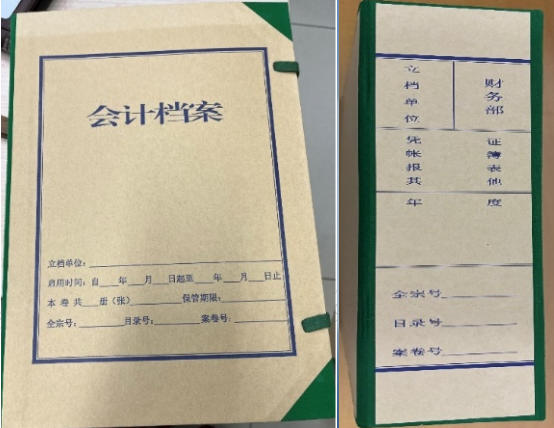 会计档案
立档单位：
启用时间：自 年 月 日起至 年 月 日止
本卷共 册（张） 保管期限：
全宗号： 目录号： 案卷号：
立档单位 财务部
凭 证
帐 簿
报 表
其 他
年 度
全宗号
目录号
案卷号